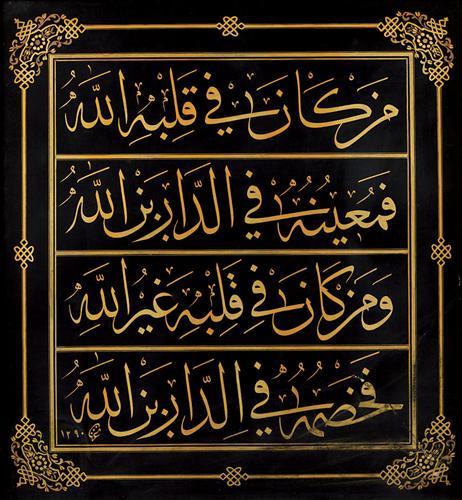 من كان في قلبه الله
فمعينه في الدارين الله
ومن كان في قلبه غير الله
فخصمه في الدارين الله
١٢٩٠